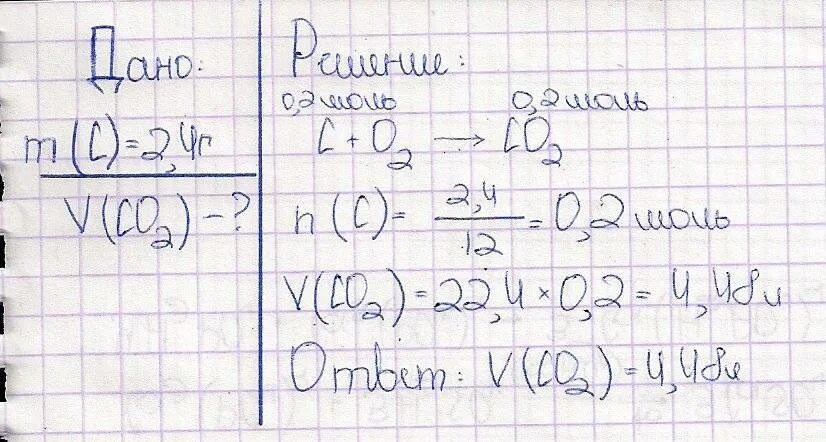 Дано:
m(C)=2,4г
V(CO₂)-?
Решение:
0,2 моль 0,2 моль
C + O₂ → CO₂
n(C)= 2,4/12 = 0,2 моль
V(CO₂)=22,4×0,2=4,48л
Ответ: V(CO₂)=4,48л